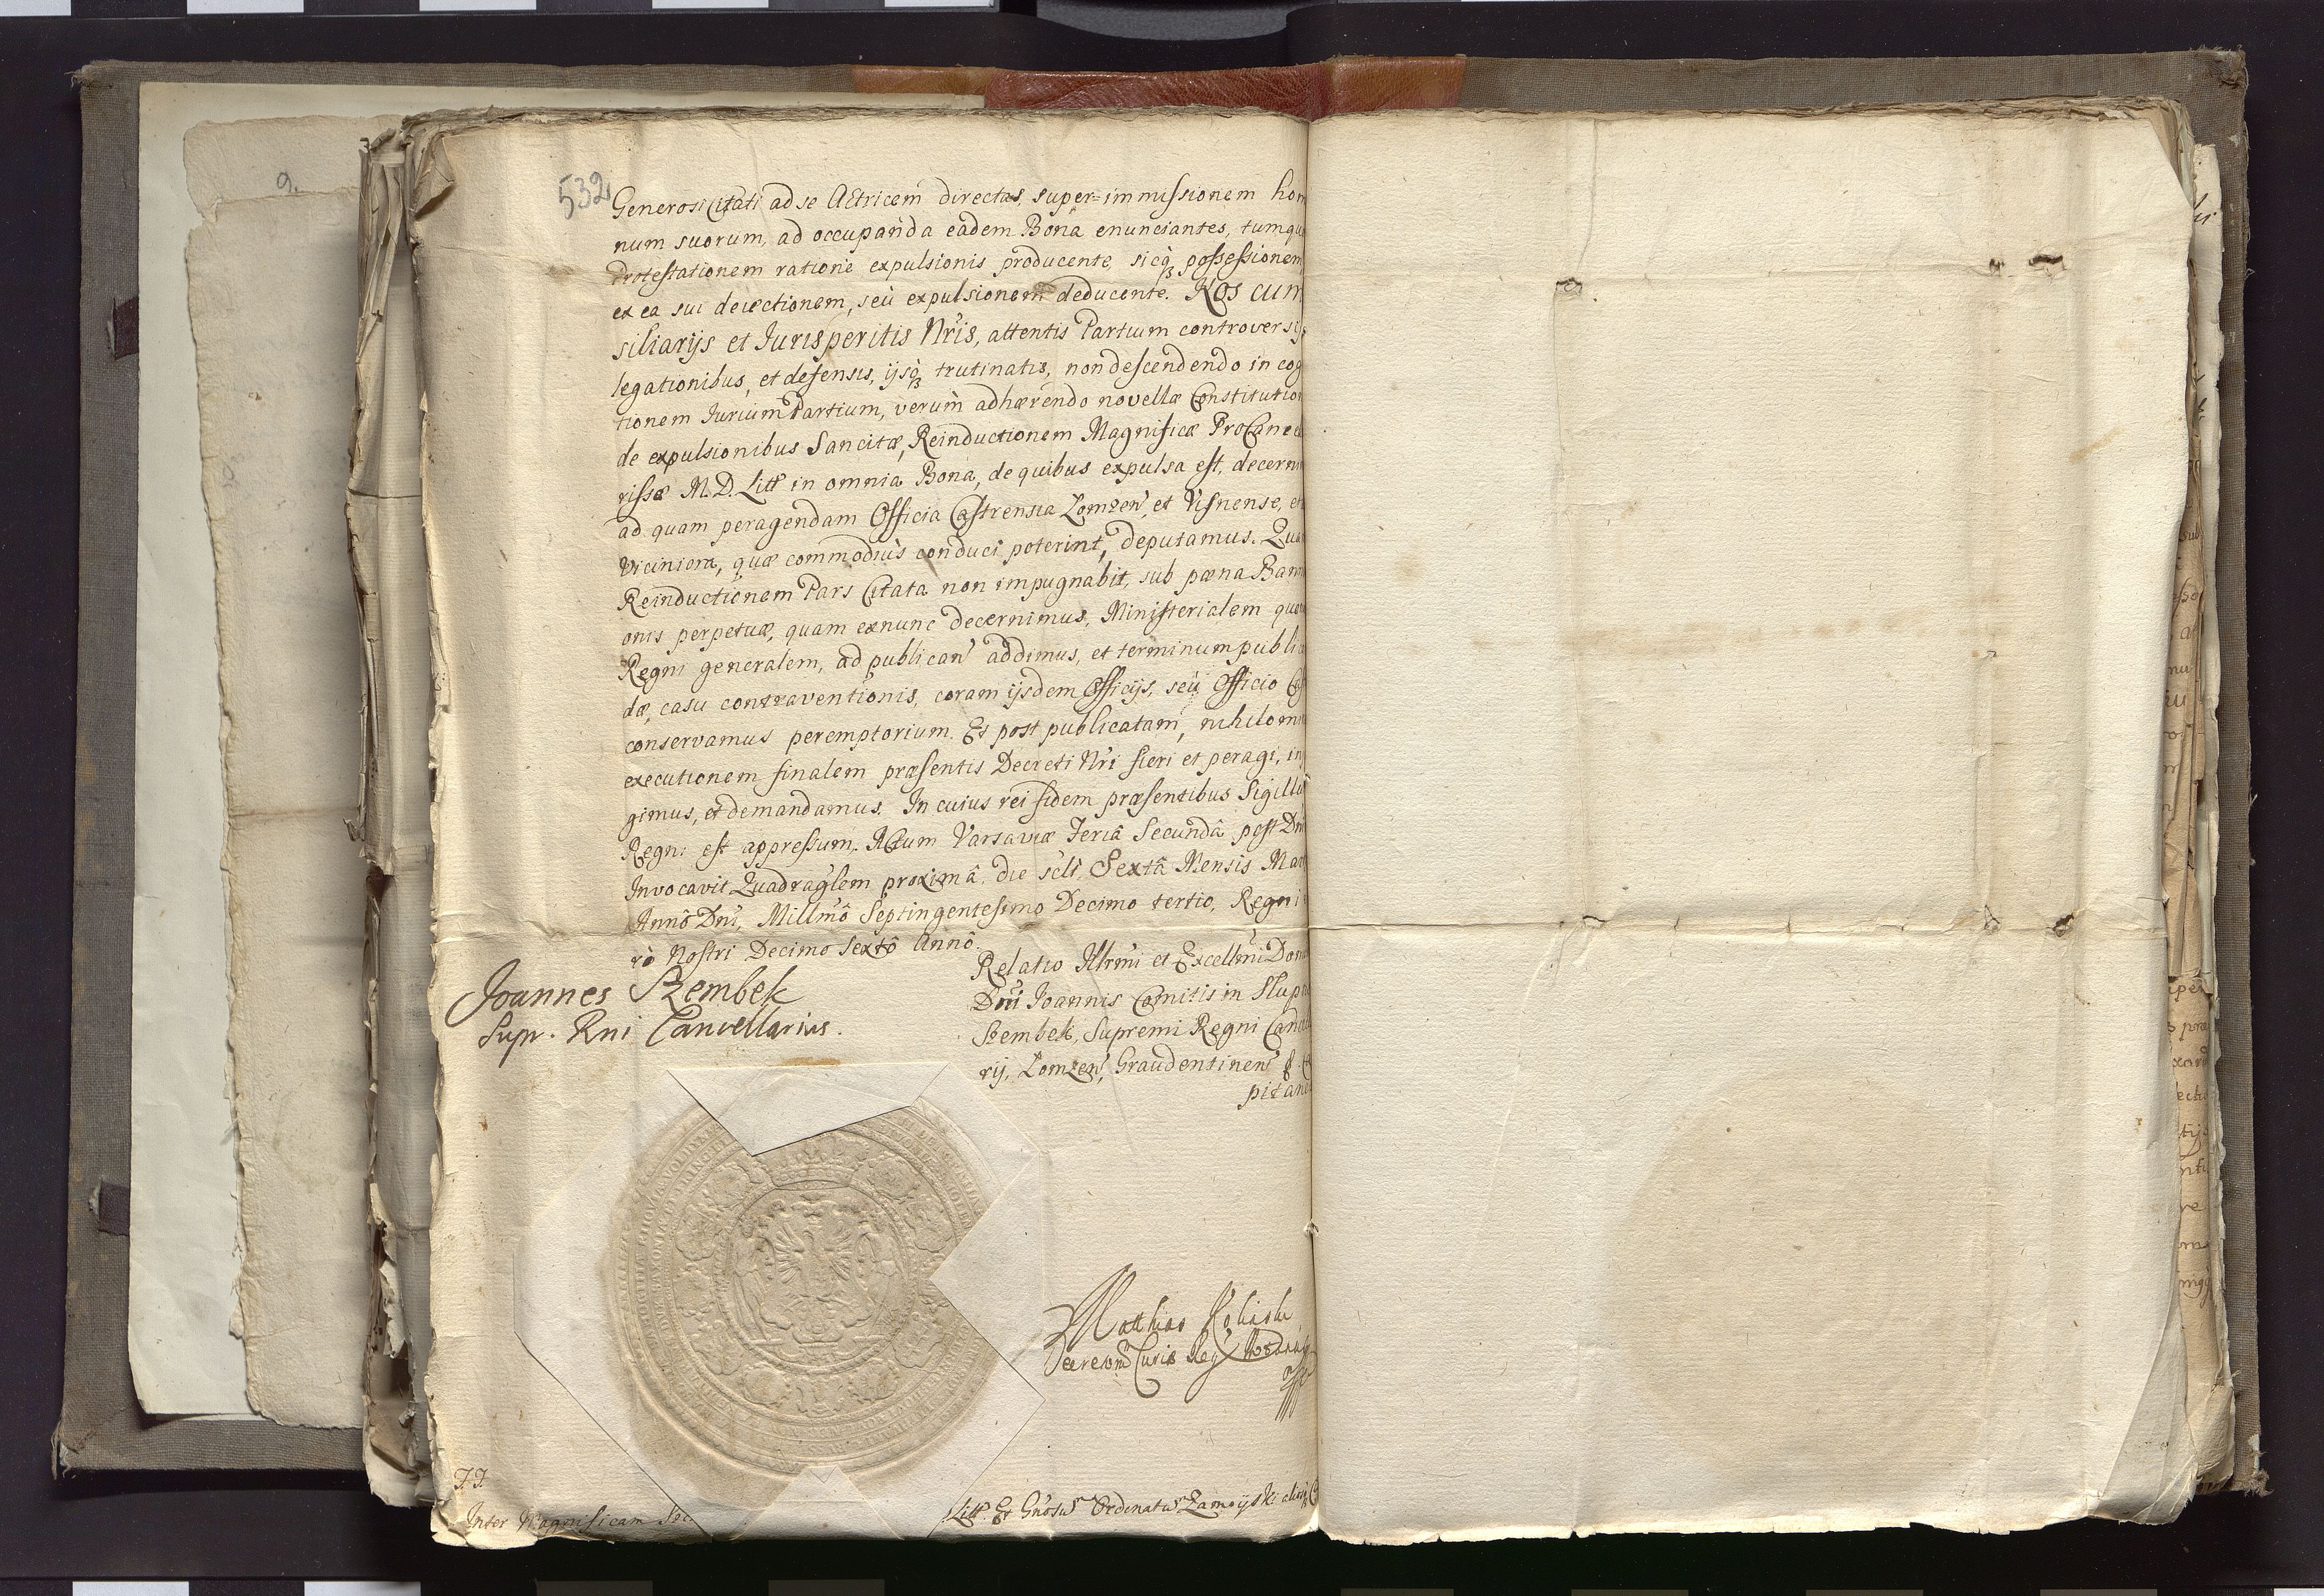 9.
532
Generosi Citati ad se Actricem directas, super=immissionem hom
num suorum, ad occupanda eadem Bona enunciantes, tumque
Protestationem ratione expulsionis producente, sicq3 possessionem
ex ea sui deiectionem, seù expulsionem deducente. Nos cum
siliarijs et Jurisperitis Nr̃is, attentis Partium controversijs
legationibus, et defensis, ijsq3 trutinatis, non descendendo in cog
tionem Jurium Partium, verum adhærendo novellæ Constitution
de expulsionibus Sancitæ, Reinductionem Magnificæ ProCancella
rissæ M. D. Litt̃ in omnia Bona, de quibus expulsa est, decerni
ad quam peragendam Officia Castrensia Lomzen̄, et Visnense, et
Viciniora, quæ commodius conduci poterint, deputamus. Qua
Reinductionem Pars Citata non impugnabit, sub pœna Banni
onis perpetuæ, quam exnunc decernimus, Ministerialem que
Regni generalem, ad publicañ addimus, et terminum public
dæ, casu contraventionis, coram ijsdem Officijs, seù Officio Cas
conservamus peremptorium. Et post publicatam, nihilomi
executionem finalem præsentis Decreti Nr̃i fieri et peragi, in
gimus, et demandamus. In cuius rei fidem præsentibus Sigillu
Regni est appressum. Actum Varsaviæ Feriâ Secundâ post Dn̄i
Invocavit Quadrag̃lem proximâ, die sc̃lt, Sextâ Mensis Mar
Annô Dn̄i, Millm̃ô Septingentesimo Decimo tertio, Regni
rò Nostri Decimo Sextô Annô.
Joannes Szembek
Supr. Rni Cancellarius.
Relatio Illr̃mi et Excellm̃i Domi
Dn̄i Joannis Comitis in Slupo
Szembek, Supremi Regni Cancella
rij, Lomzeñ, Graudentineñ &. C
pitanei
Mathias
Decretor̃ Curiæ Reg
J.J.
Inter Magnificam
Litt̃. Et Gn̄osũ Ordinatũ Zamoyski